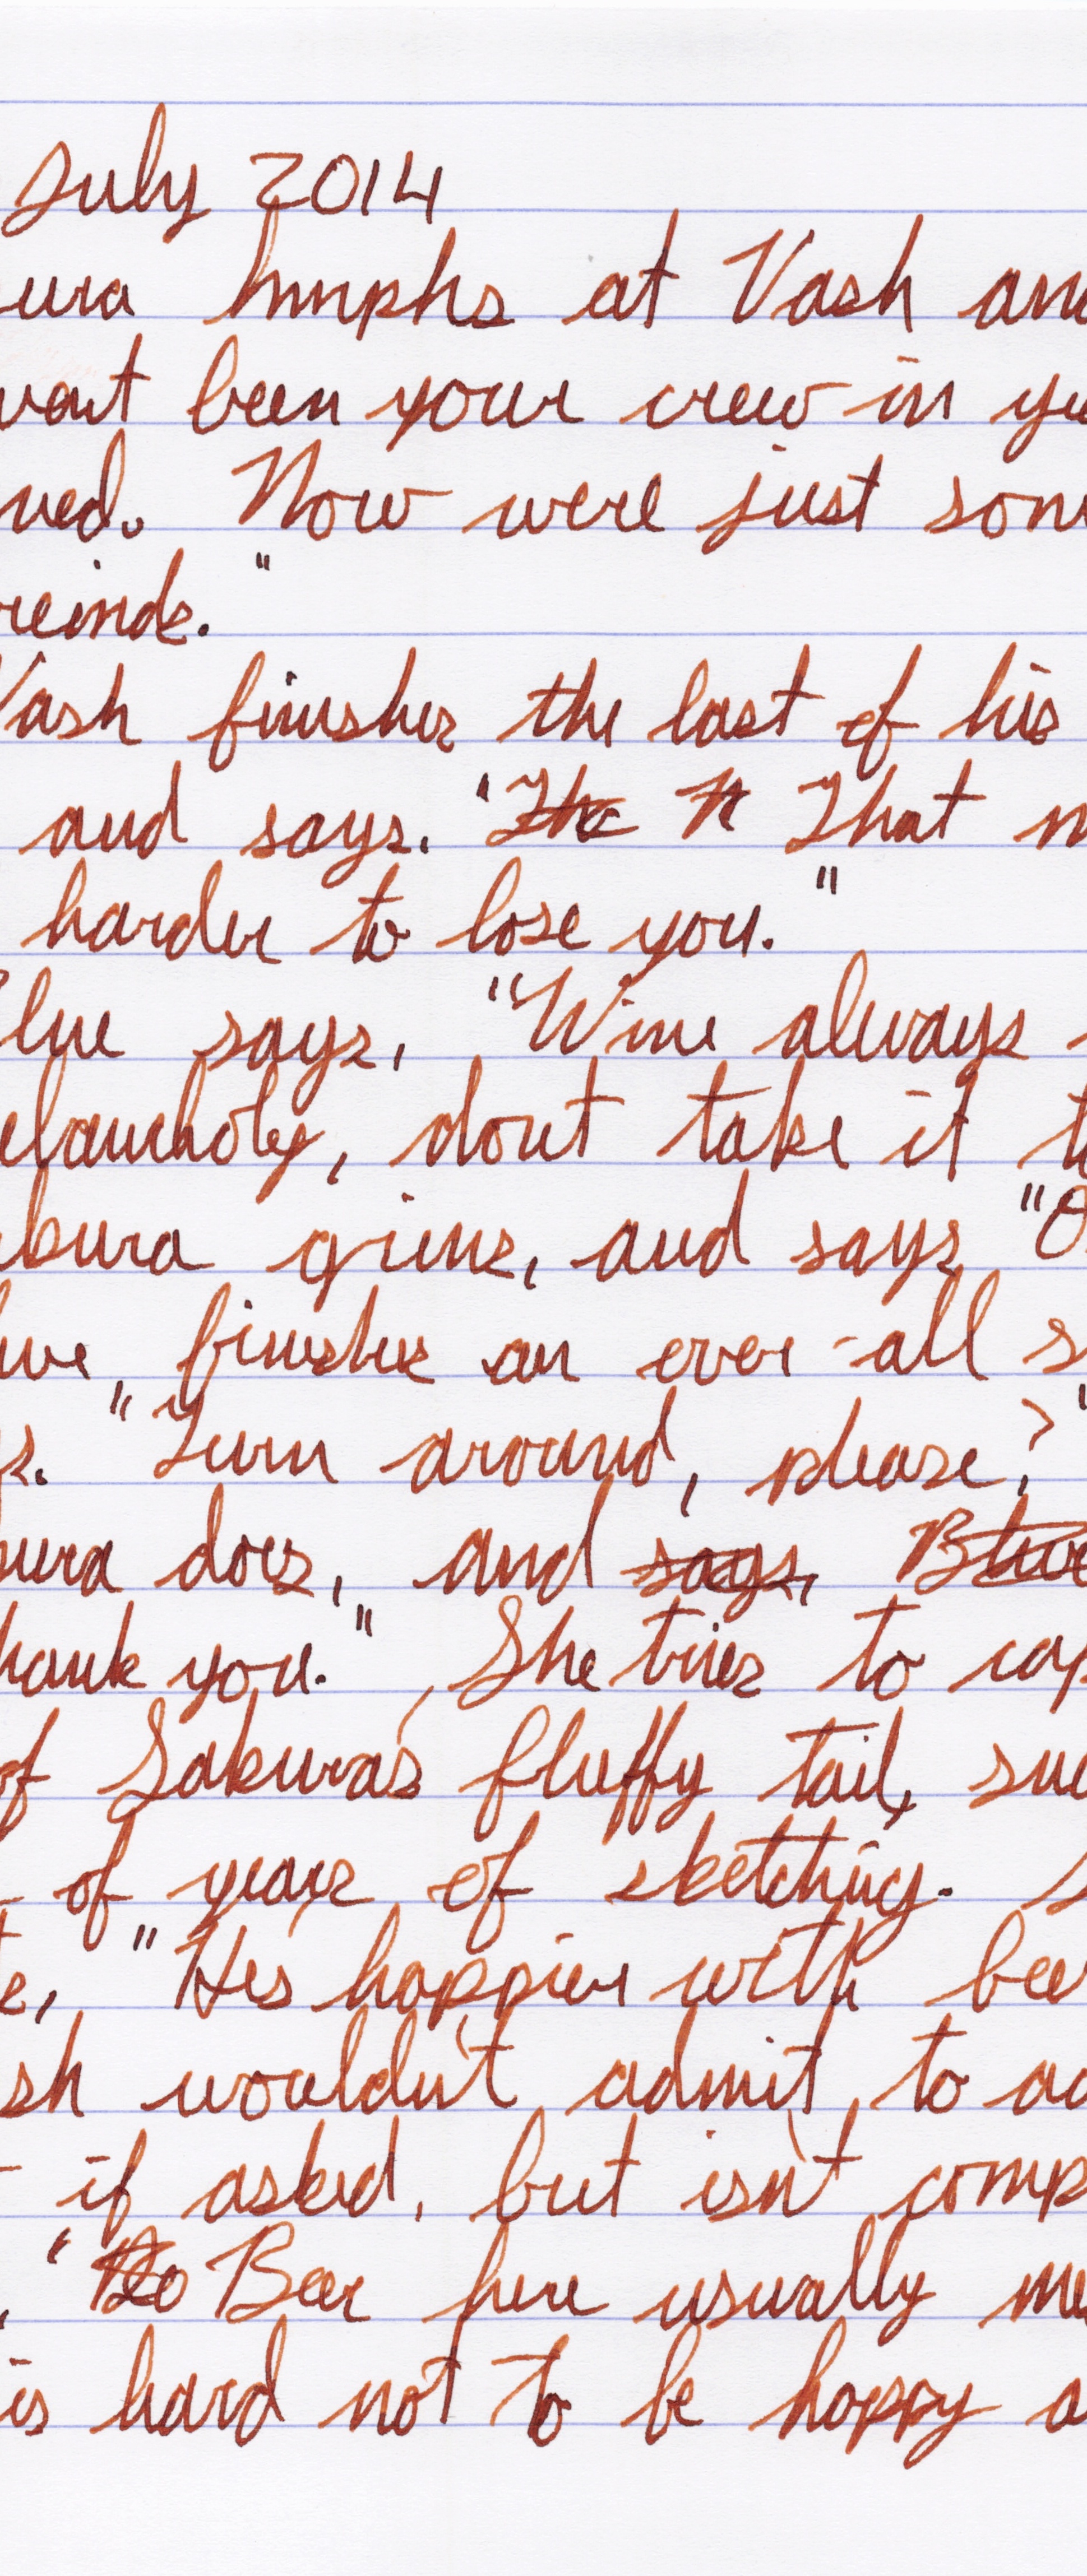 July 2014
ura hmphs at Vash and
vent been your crew in ye
ned. Now were just som
reinds."
Vash finishes the last of his
and says. "The N That m
harder to lose you."
lue says, "Wine always
elancholy, dont take it t
kura grins, and says "O
lue finishes an over-all s
s. "Turn around, please?"
kura does, and says, Blue
hank you." She tries to cap
of Sakura's fluffy tail, su
of years of sketching. S
e, "He's happier with bee
sh wouldn't admit to ad
if asked, but isn't comp
, "No Beer here usually me
is hard not to be happy a